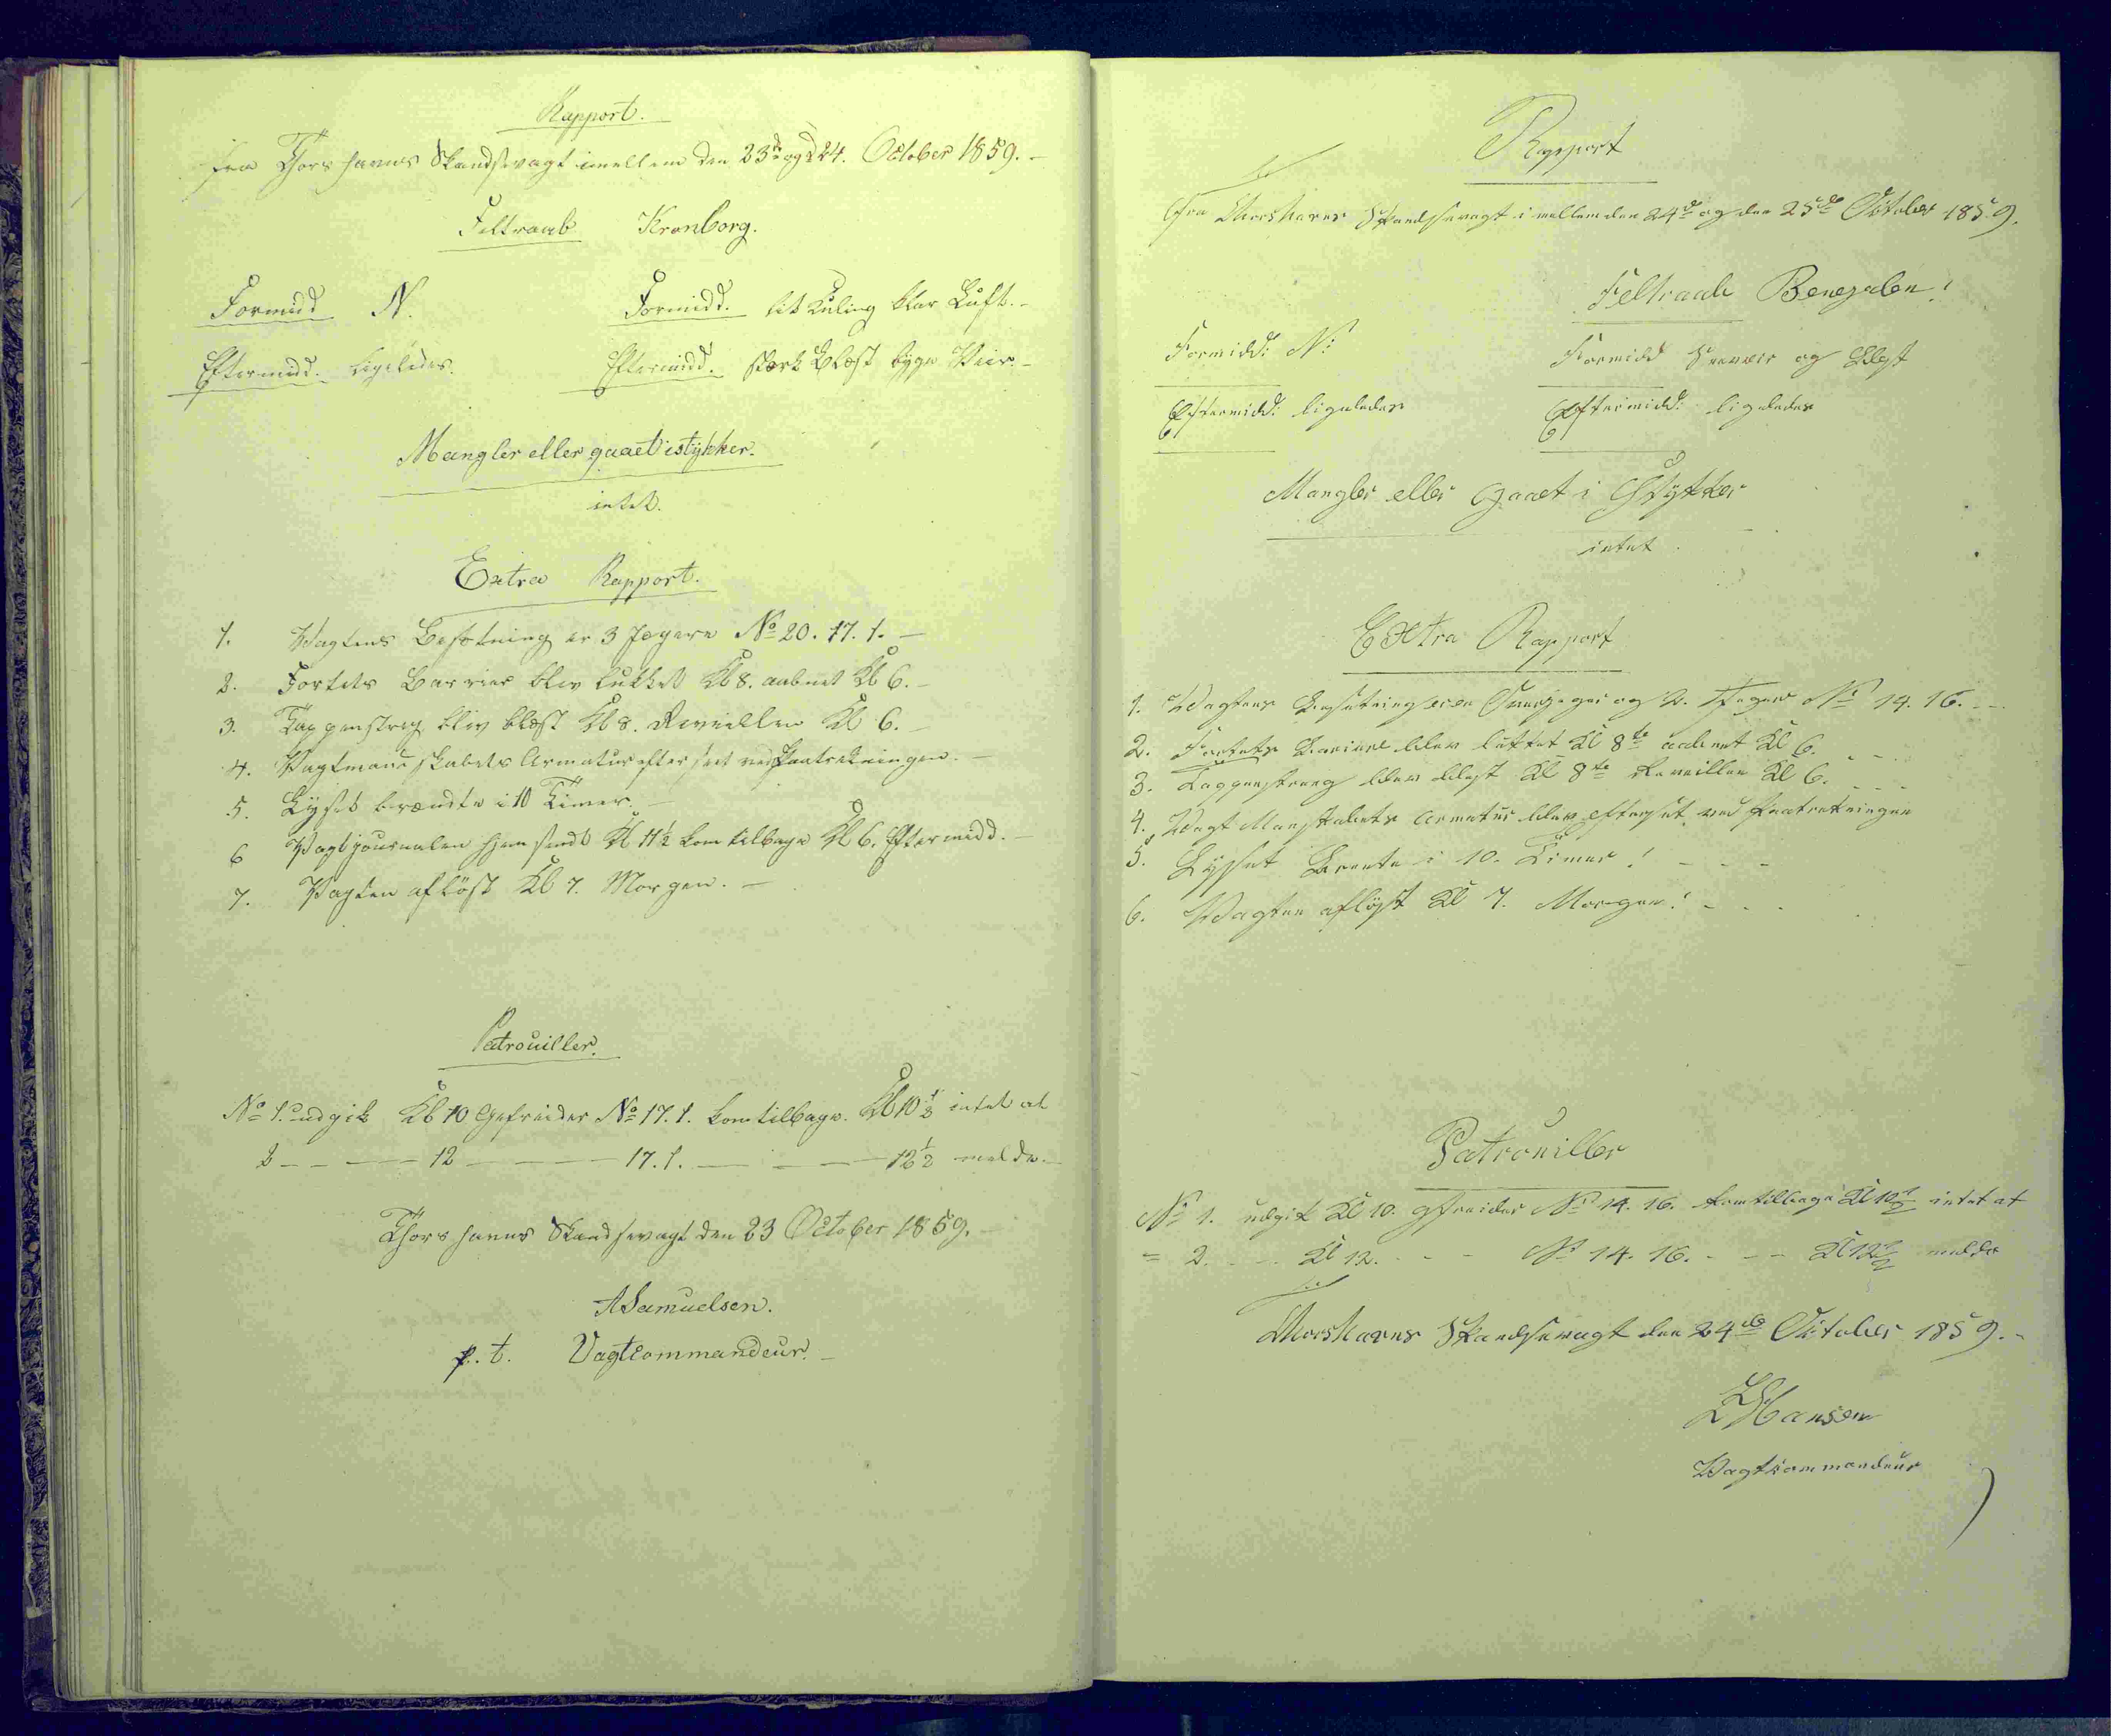 Rapport.
fra Thorshavns Skandsevagt imellem den 23de og d 24. October 1859. –
Feltraab Kronborg.
Formidd N. Formidd. lit Kuling klar Luft. –
Eftermidd. ligeledes. Eftermidd. stærk Blæst byge Veir. –
Mangler eller gaaet istykker.
intet.
Extra Rapport.
1. Vagtens Besætning er 3 Jægere No 20. 17. 1. –
2. Fortets Barrier blev lukket Kl 8. aabnet Kl 6. –
3. Tappenstreg blev blæst Kl 8. Revieillen Kl 6. –
4. Vagtmandskabets Armatur efterseet ved Paatrækningen. –
5. Lyset brændte i 10 Timer. –
6 Vagtjournalen hjemsendt Kl 11½ kom tilbage Kl 6. Eftermidd. –
7. Vagten afløst Kl 7. Morgen. –
Patrouiller.
No 1. udgik Kl 10 Gefreider No 17. 1. kom tilbage. Kl 10½ intet at
2 – – – 12 – – – 17. 1. – – – 12½ melde. –
Thorshavns Skandsevagt den 23 October 1859. –
A Samuelsen.
p. t. Vagtcommandeur. –
Rapport
fra Thorshavns Skandsevagt i mellem den 24de og den 25de October 1859.
Feltraab Bengalen!
Formidd: N: Formidd Sneveir og Blæst
Eftermidd: ligeledes Eftermidd: ligeledes
Mangler eller Gaaet i Stykker
intet.
Extra Rapport
1. Vagtens Besætning er en Overjæger og 2. Jæger No 14. 16. – –
2. Fortets Bariere blev lukket Kl 8te aabnet Kl 6. – –
3. Tappenstreeg blev blæst Kl 8te Reveillen Kl 6. – – –
4. Vagt Manskabets Armatur blev efterset ved Paatrekningen
5. Lysset Brente i 10. Timer! – – –
6. Vagten afløst Kl 7. Morgen! – – –
Patrouiller
No 1. udgik Kl 10. gfreider No 14. 16. kom tilbage Kl 10½ intet at
= 2. – – Kl 12. – – – No 14. 16. – – – Kl 12½ melde
Thorshavns Skandsevagt den 24de October 1859. –
Hansen
Vagtkommandeur